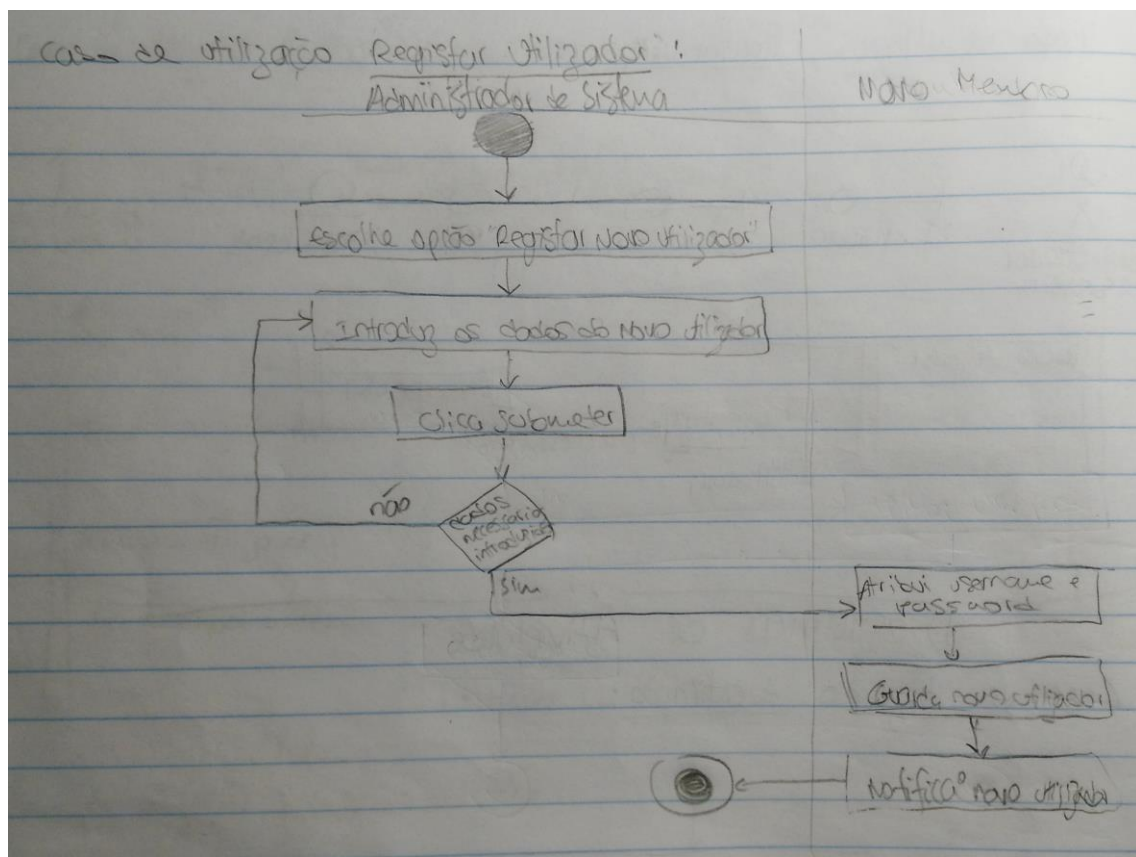 Caso de utilização Registar Utilizador":
Administrador de Sistema
Novo Membro
Escolhe opção "Registar Novo Utilizador"
Introduz os dados do novo utilizador
Clica submeter
não
dados
necessario
introduzidos
sim
Atribui username e
password
Guarda novo utilizador
Notifica o novo utilizador